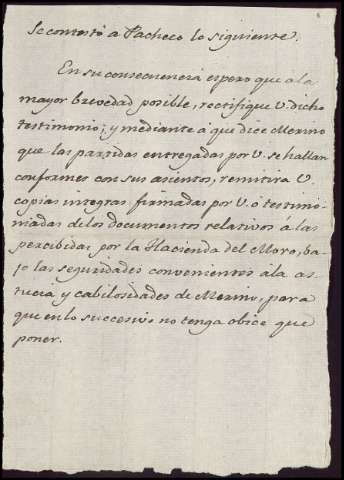 Se contestó a Pacheco lo siguiente.
En su consecuencia espero que a la
mayor brevedad posible, rectifique V. dicho
testimonio; y mediante a que dice Merino
que las partidas entregadas por V. se hallan
conformes con sus asientos, remitira V.
copias integras firmadas por V. ó testimo-
niadas de los documentos relativos á las
percibidas por la Hacienda del Moro, ba-
jo las seguridades convenientes á la as-
tucia y cabilosidades de Merino, para
que en lo succesivo no tenga obice que
poner.